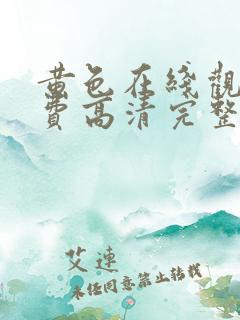 黄色在綫觀
費高清完整
艾連
未经同意禁止转载